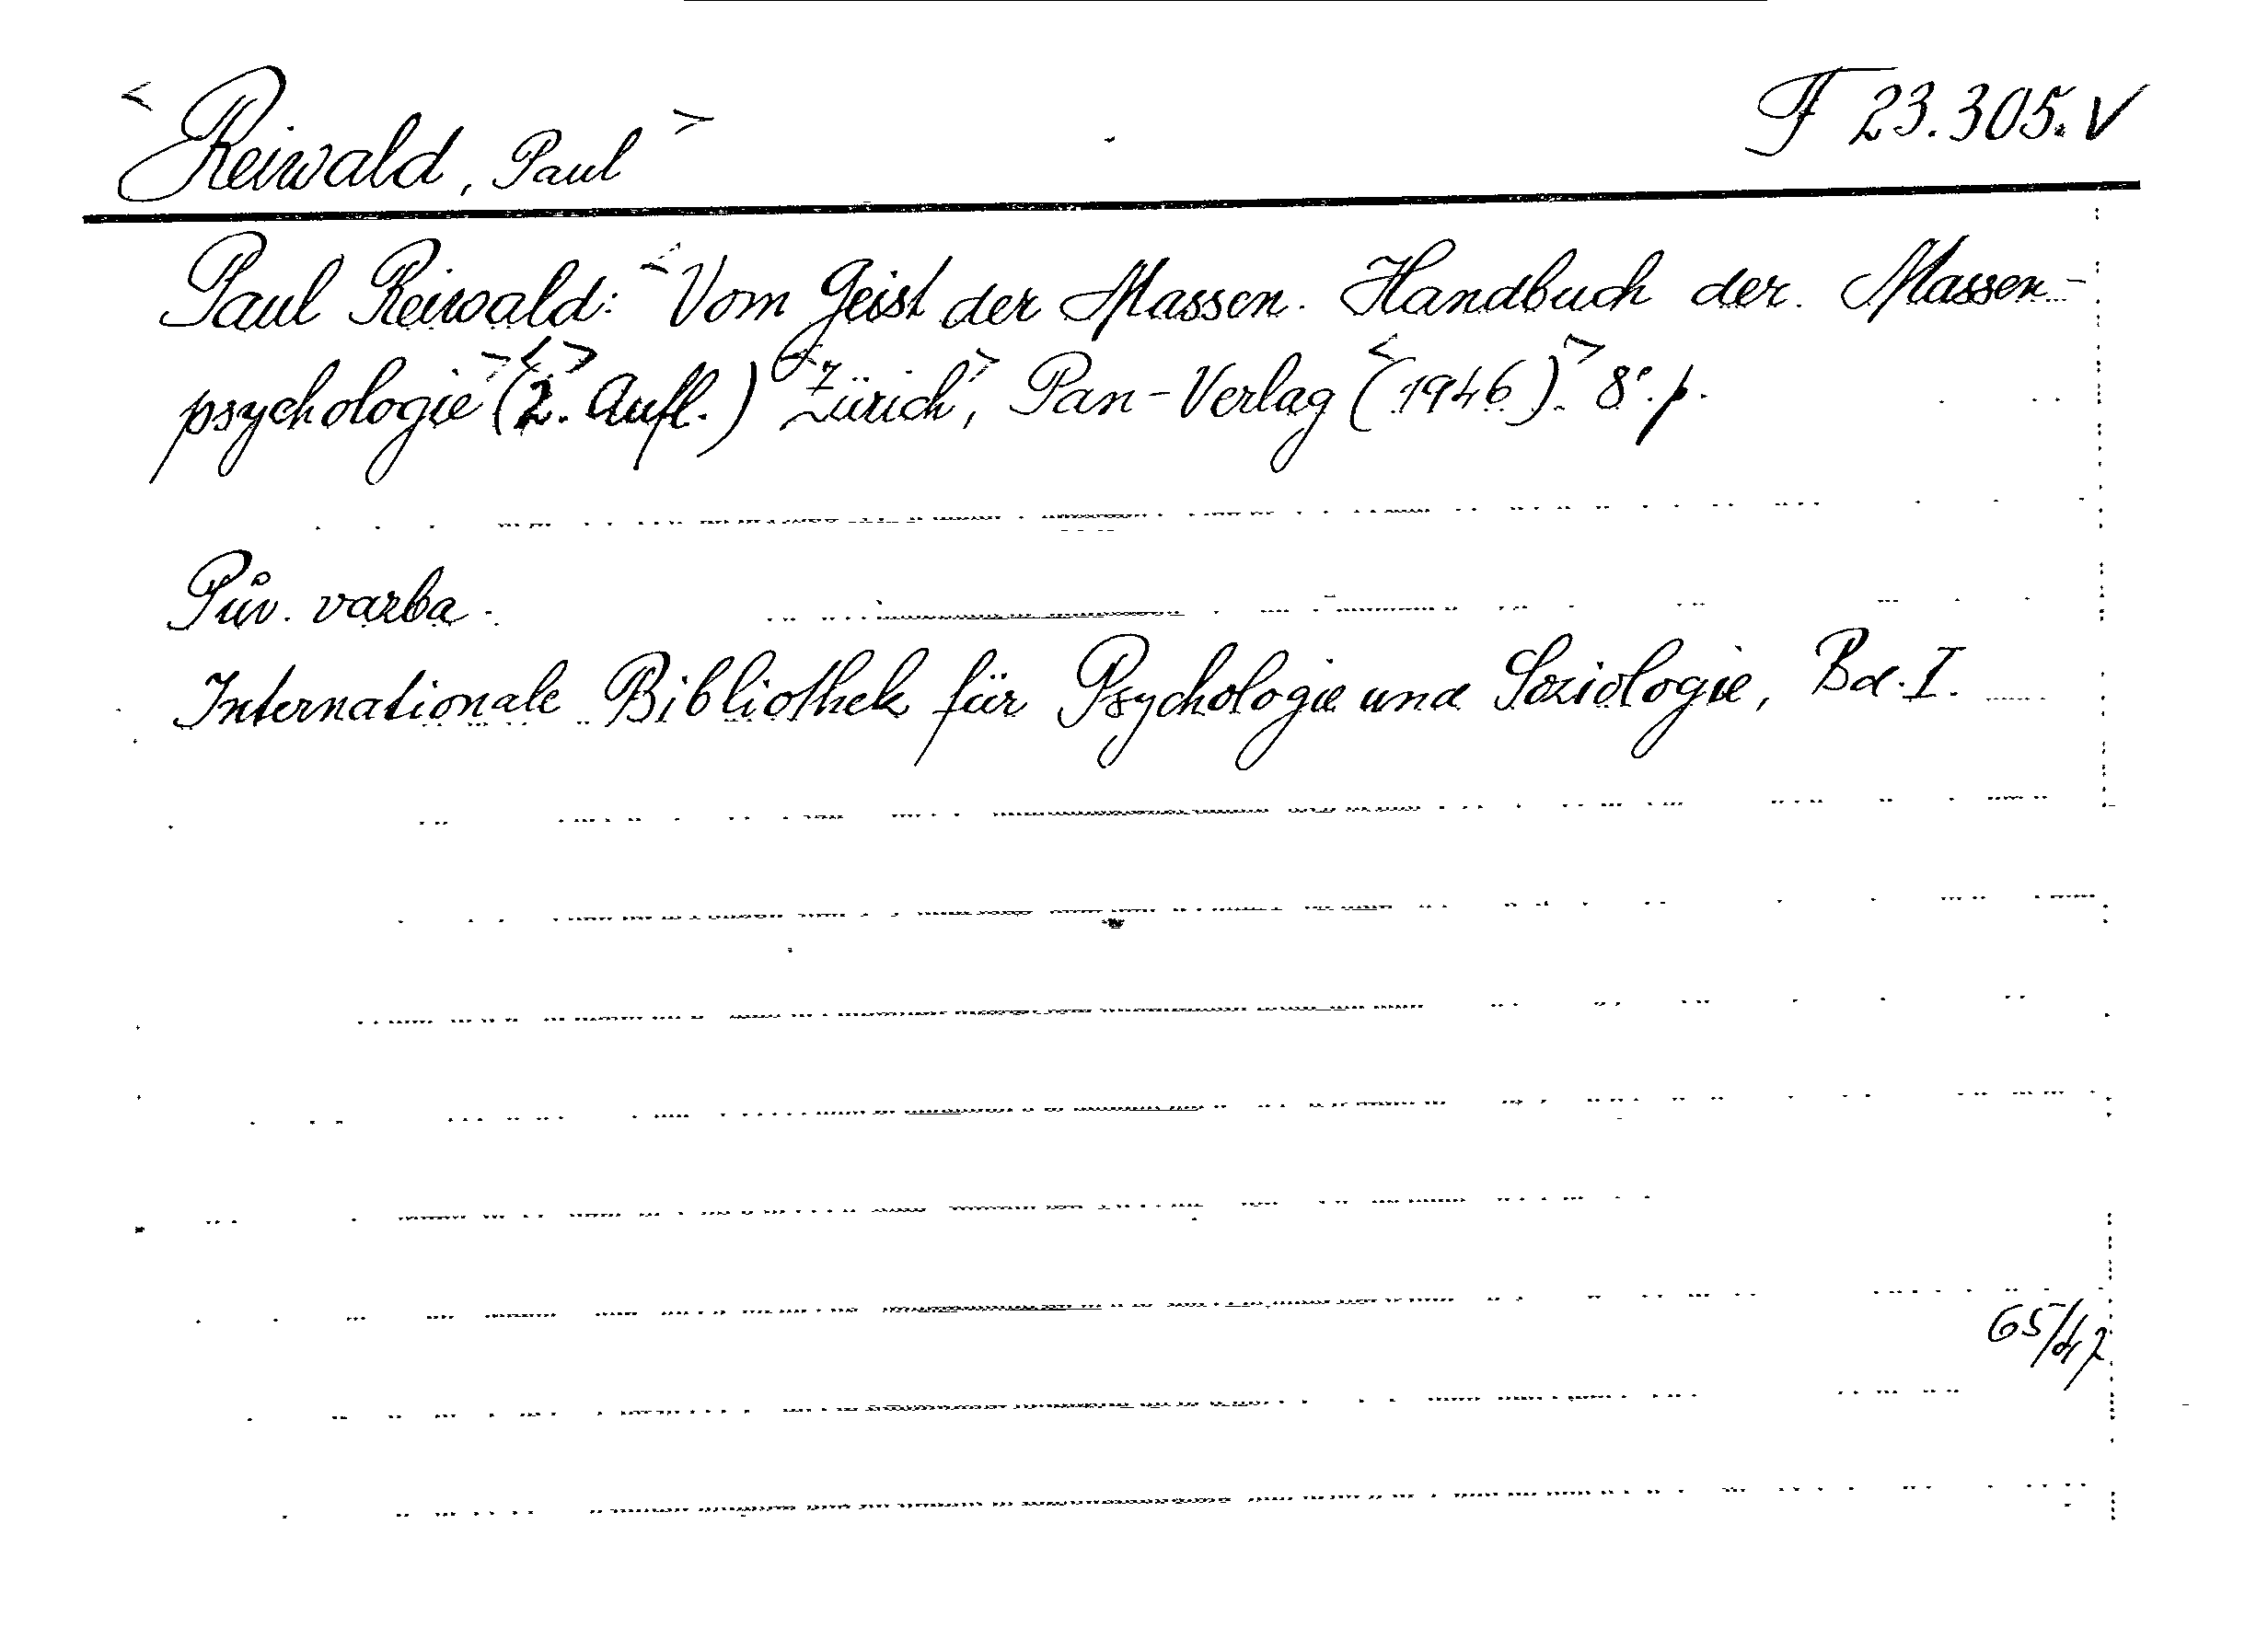 <Reiwald, Paul> F 23.305.V
Paul Reiwald: <Vom Geist der Massen. Handbuch der Massen-
psychologie> (<2.> Aufl.) <Zürich>, Pan-Verlag <(1946).> 8°. p.
Pův. vazba.
Internationale Bibliothek für Psychologie und Soziologie, Bd. I.
65/47